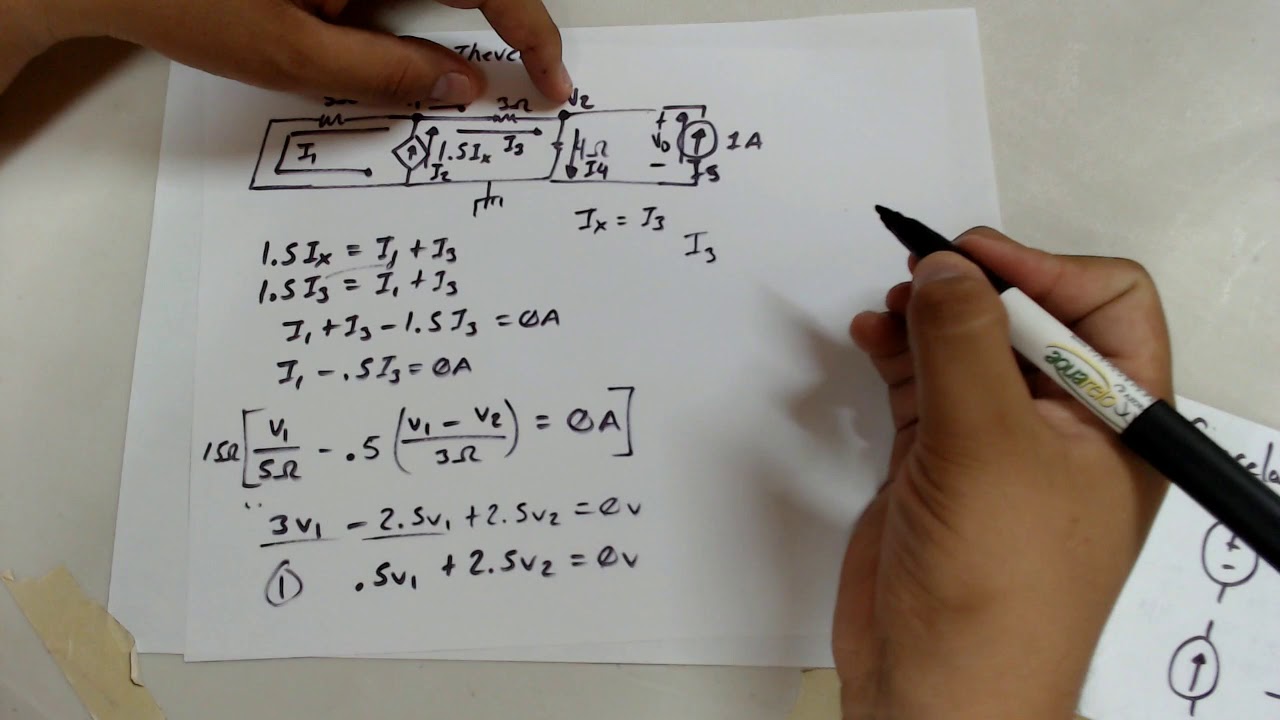 3Ω V2
I1 1.5Ix I3 4Ω + Vo - 1A
I2 I4 Is
Ix = I3
I3
1.5Ix = I1 + I3
1.5I3 = I1 + I3
I1 + I3 - 1.5I3 = 0A
I1 - .5I3 = 0A
15Ω [ V1/5Ω - .5 ( (V1 - V2)/3Ω ) = 0A ]
3V1 - 2.5V1 + 2.5V2 = 0V
① .5V1 + 2.5V2 = 0V